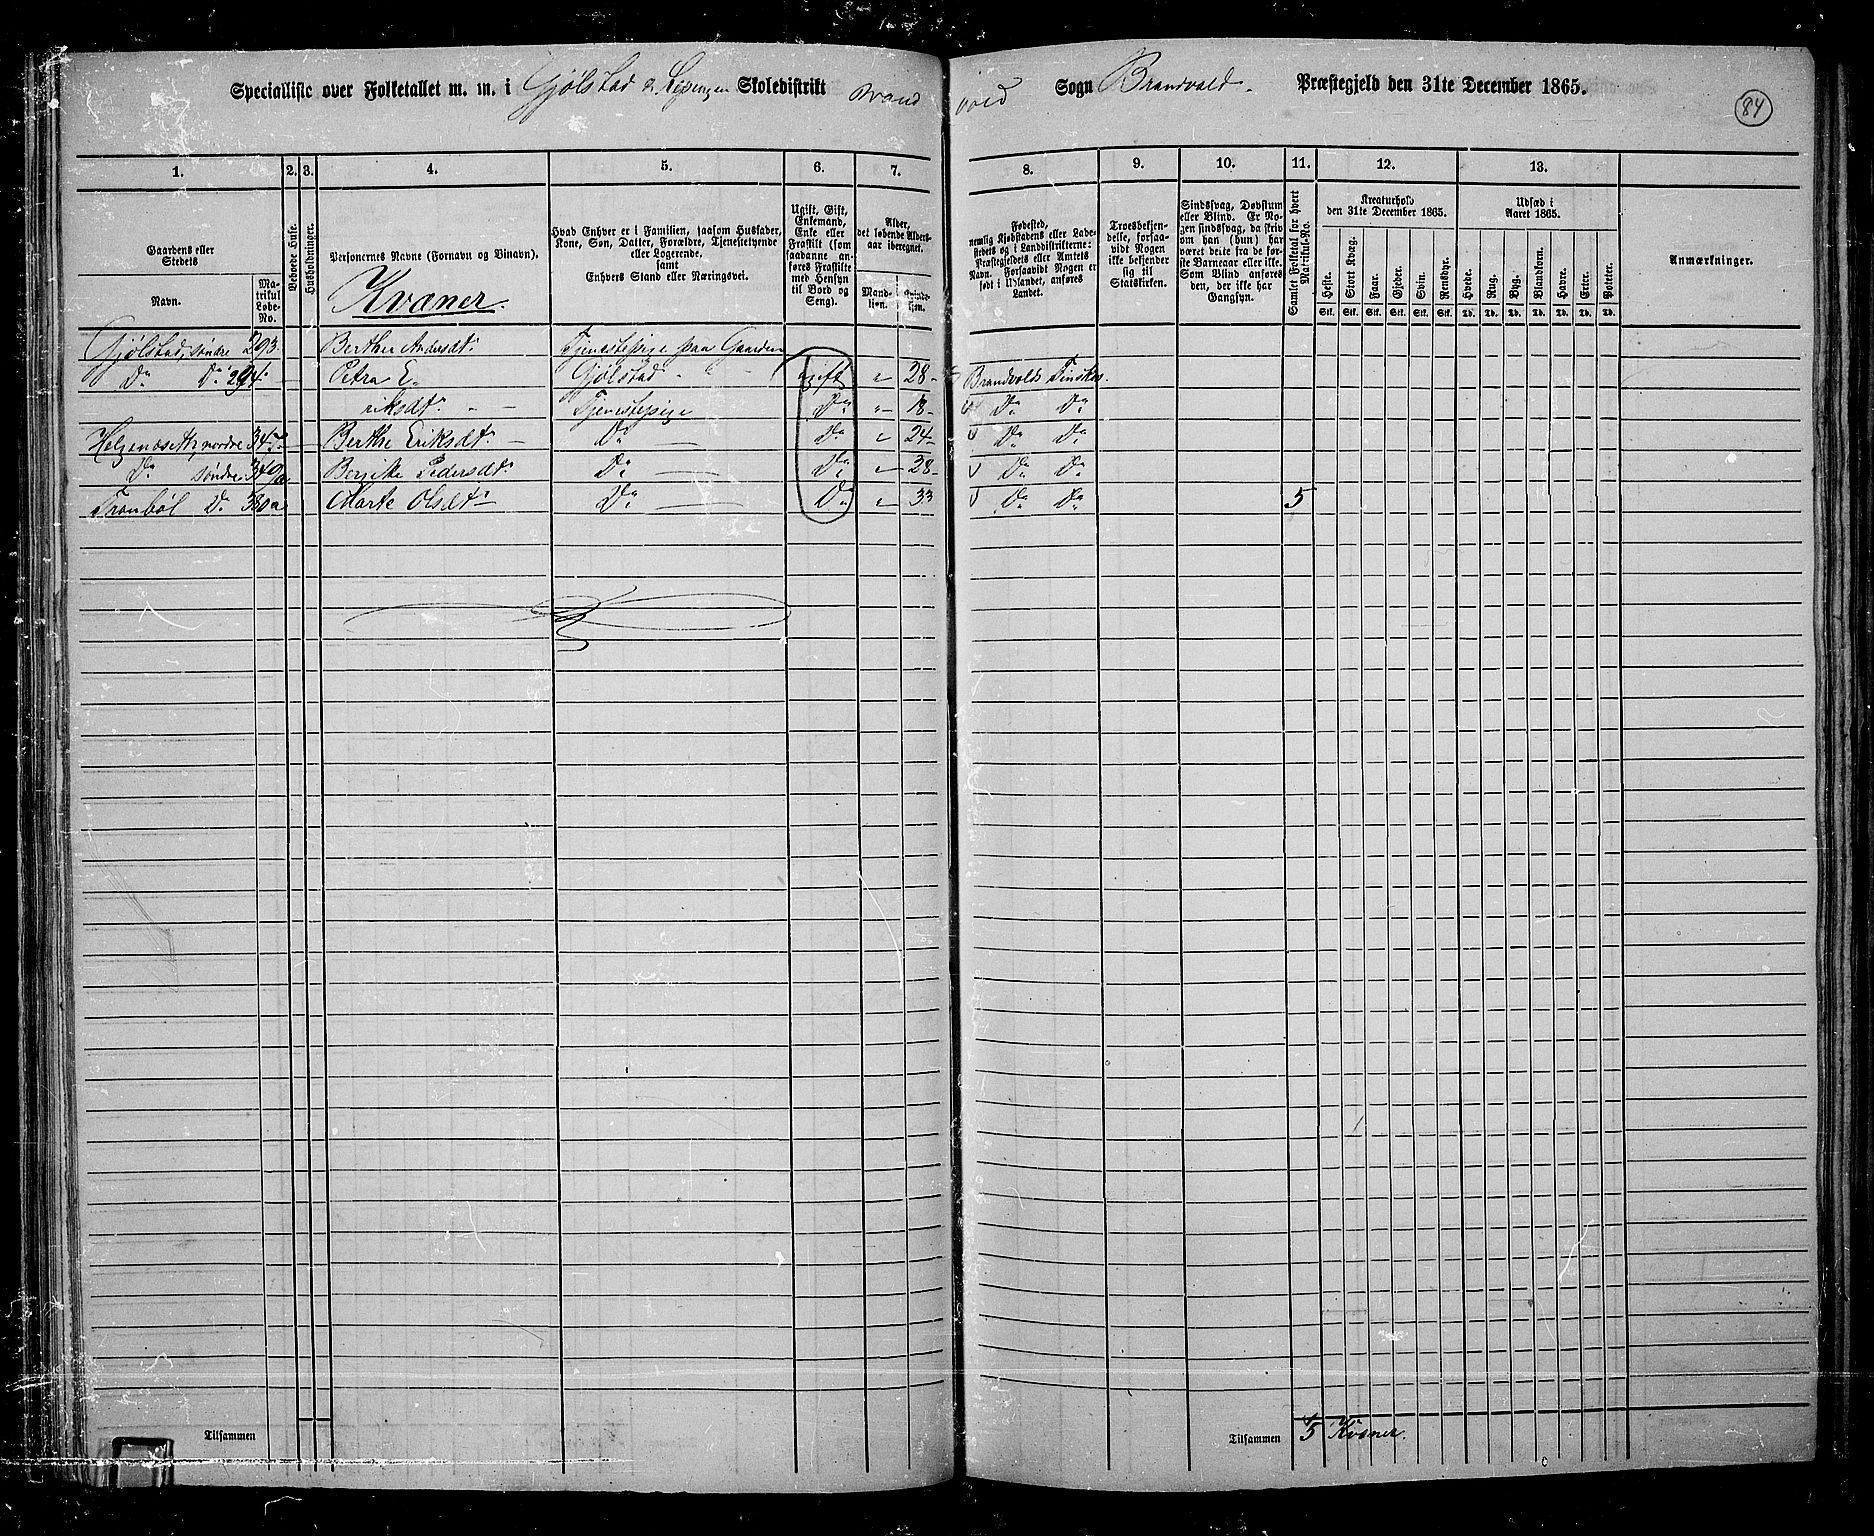 Specialliste over Folketallet m. m. i Gjølstad & Skoledistrikt Brand vold Sogn Brandvold. Præstegjeld den 31te December 1865.
84
1. 2. 3. 4. 5. 6. 7. 8. 9. 10. 11. 12. 13.
Gaardens eller Stedets
Navn.
Matrikul Løbe-No.
Beboede Huse.
Husholdninger.
Personernes Navne (Fornavn og Tilnavn).
Kvæner.
Hvad Enhver er i Familien, saasom Husfader, Kone, Søn, Datter, Forældre, Tjenestetyende eller Logerende,
samt
Enhvers Stand eller Næringsvei.
Ugift, Gift, Enkemand, Enke eller Fraskilt (som saadanne anføres Fraskilte med Hensyn til Bord og Seng).
Alder, det løbende Alders-aar iberegnet.
Mandkjøn.
Kvindekjøn.
Fødested, nemlig Kjøbstadens eller Ladestedets og i Landdistrikterne: Præstegjeldets eller Amtets Navn. Forsaavidt Nogen er født i Udlandet, anføres Landet.
Troesbekjendelse, forsaavidt Nogen ikke bekjender sig til Statskirken.
Sindssvag, Døvstum eller Blind. Er Nogen sindssvag, da skriv om han (hun) har været dette fra de første Barneaar eller ikke. Som Blind anføres den, der ikke har Gangsyn.
Samlet Folketal for hvert Matrikul-No.
Kreaturhold den 31te December 1865.
Heste. Stort Kvæg. Faar. Gjeder. Svin. Rensdyr.
Stk. Stk. Stk. Stk. Stk. Stk.
Udsæd i Aaret 1865.
Hvede. Rug. Byg. Blandkorn. Havre. Erter. Poteter.
Td. Td. Td. Td. Td. Td. Td.
Anmærkninger.
Gjølstad, søndre 293. Berthe Andersdtr. Tjenestepige paa Gaarden
Do Do 294. Petra E. Gjølstad ugift " 28 Brandvolds Finskog
riksdtr. Tjenestepige Do " 18 Do Do
nordre 347 Berthe Eriksdtr. Do Do " 24 Do Do
Do søndre 349a Pedersdtr. Do Do " 28 Do Do
Tranbøl Do 380a Marte Olsdtr Do Do " 33 Do Do 5
Tilsammen
Tilsammen 5 Kvæner.